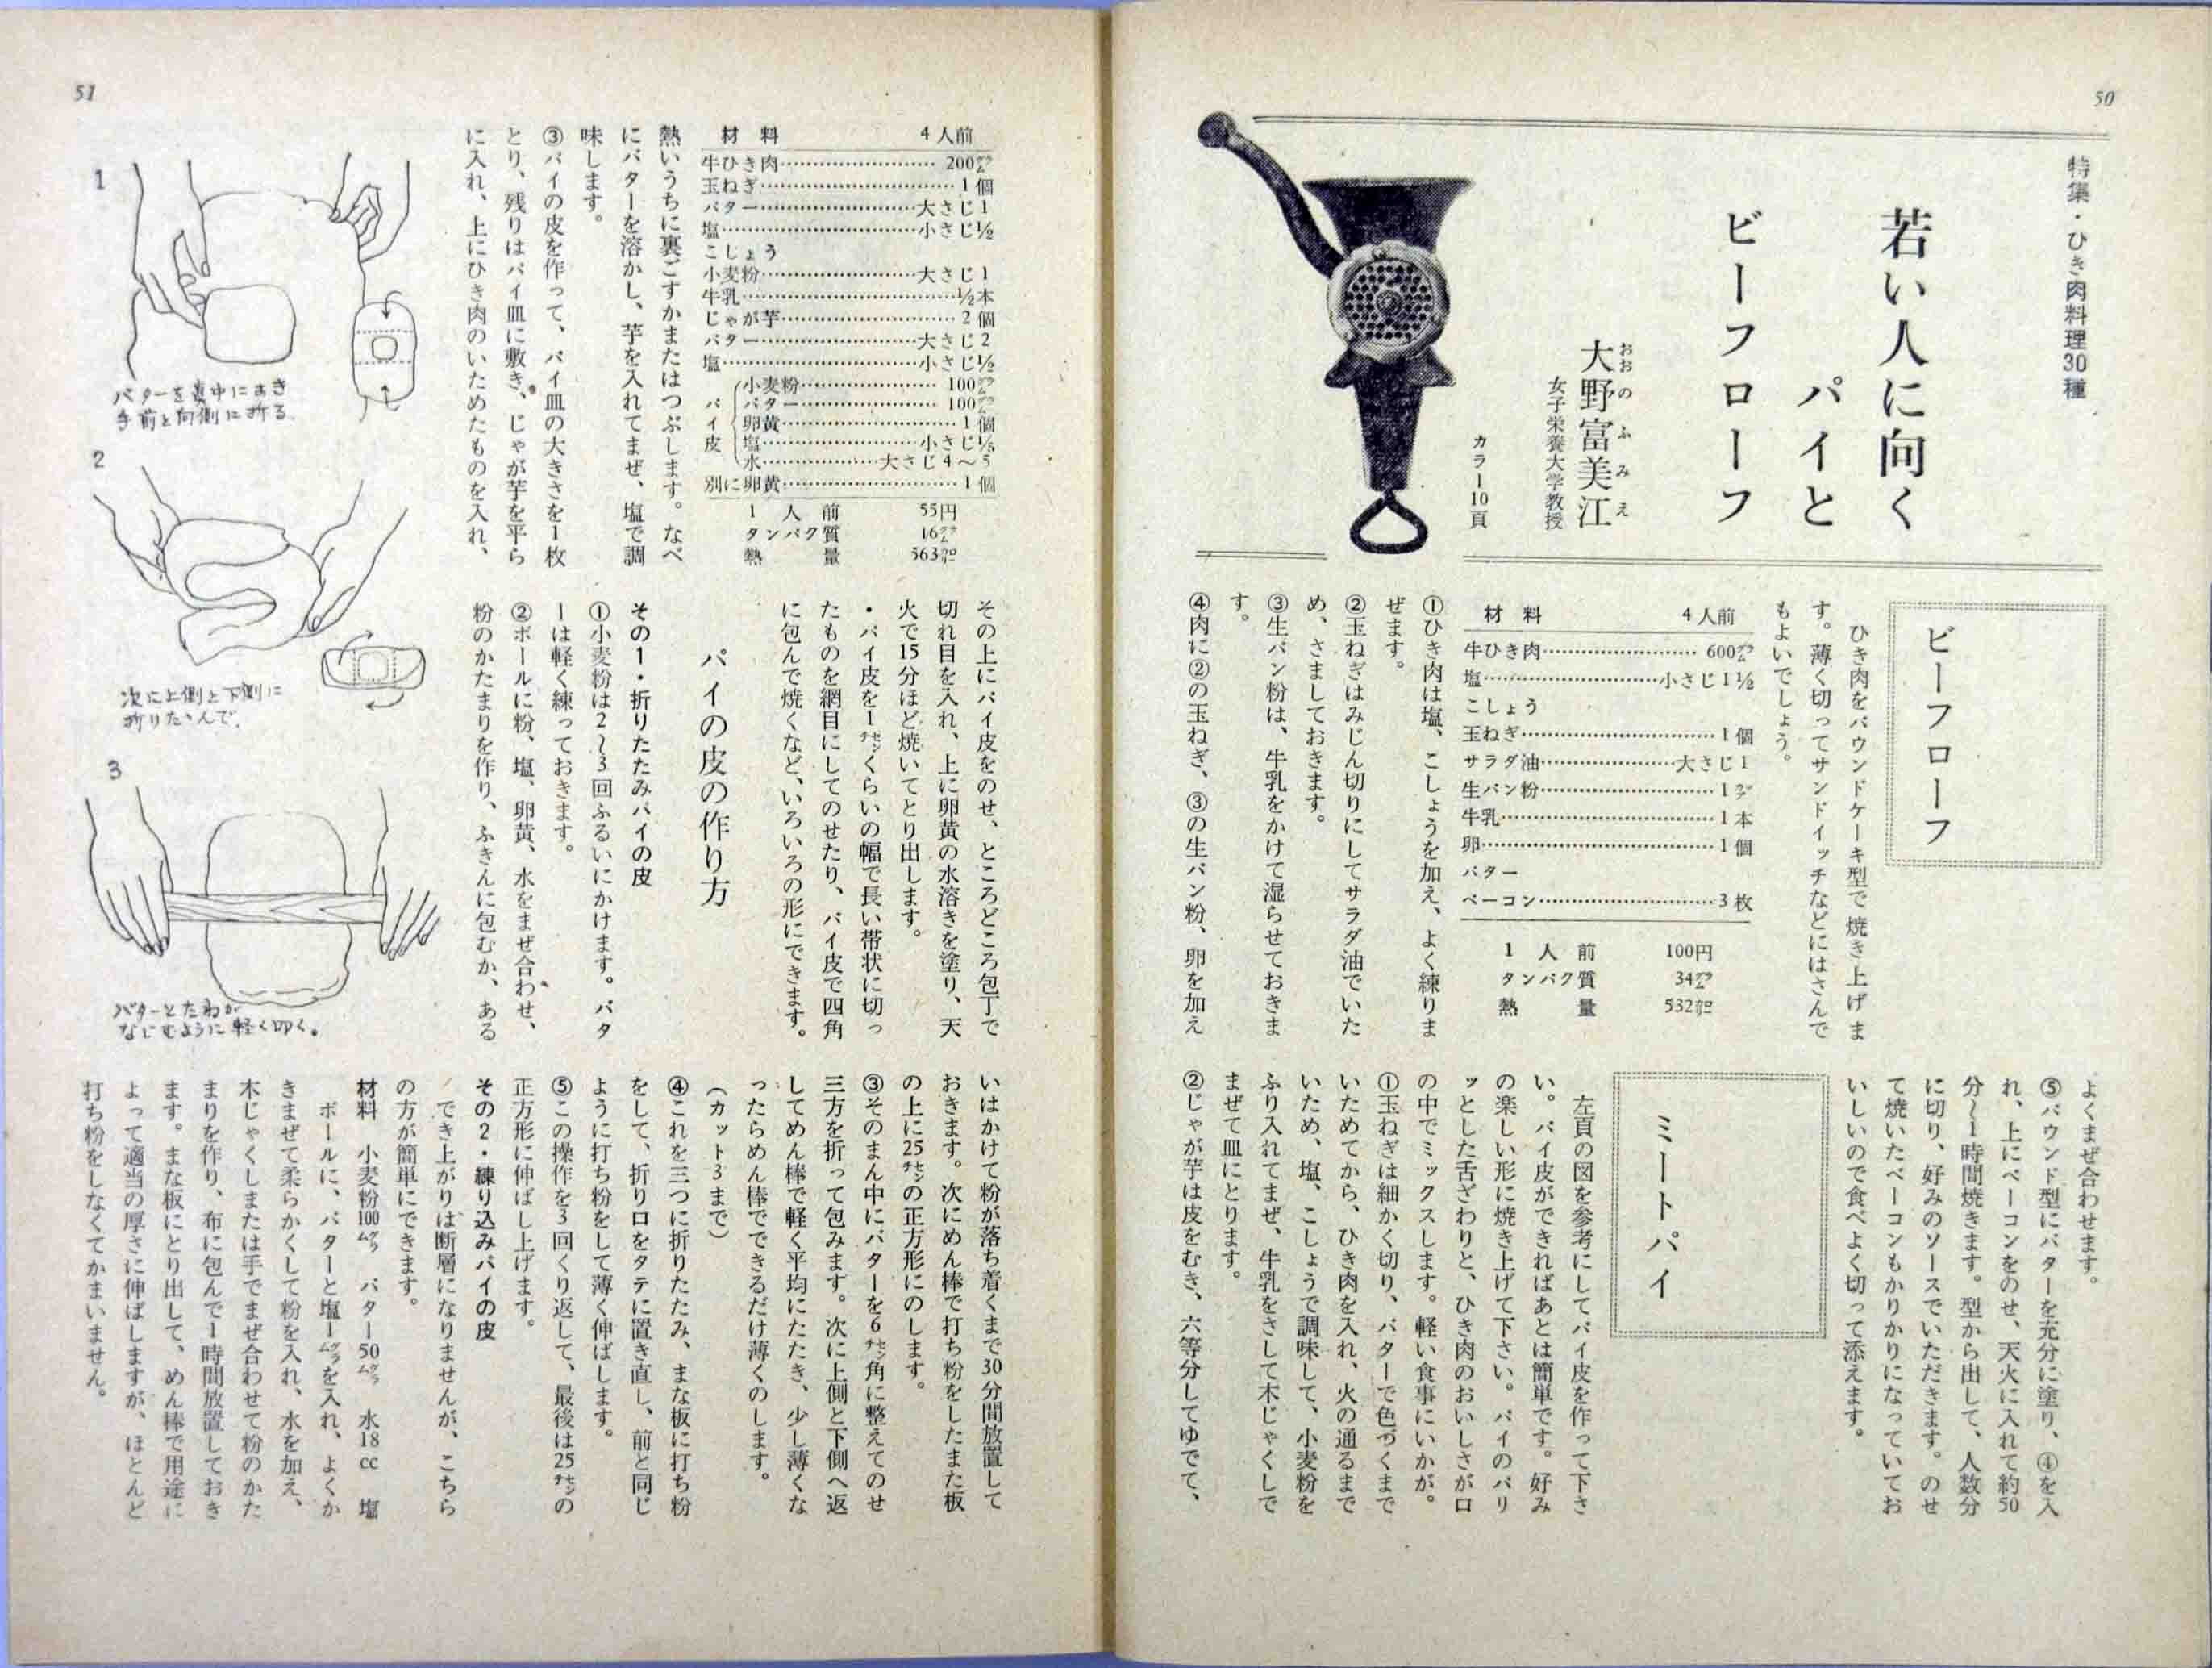 50
特集・ひき肉料理30種
若い人に向く
パイと
ビーフローフ
大野富美江
おおのふみえ
女子栄養大学教授
カラー10頁
ビーフローフ
ひき肉をパウンドケーキ型で焼き上げま
す。薄く切ってサンドイッチなどにはさんで
もよいでしょう。
材料 4人前
牛ひき肉…………600㌘
塩…………小さじ1½
こしょう
玉ねぎ…………1個
サラダ油…………大さじ1
生パン粉…………1㌘
牛乳…………1本
卵…………1個
バター
ベーコン…………3枚
1人前 100円
タンパク質 34㌘
熱量 532㌍
①ひき肉は塩、こしょうを加え、よく練りま
ぜます。
②玉ねぎはみじん切りにしてサラダ油でいた
め、さましておきます。
③生パン粉は、牛乳をかけて湿らせておきま
す。
④肉に②の玉ねぎ、③の生パン粉、卵を加え
よくまぜ合わせます。
⑤パウンド型にバターを充分に塗り、④を入
れ、上にベーコンをのせ、天火に入れて約50
分〜1時間焼きます。型から出して、人数分
に切り、好みのソースでいただきます。のせ
て焼いたベーコンもかりかりになっていてお
いしいので食べよく切って添えます。
ミートパイ
左頁の図を参考にしてパイ皮を作って下さ
い。パイ皮ができればあとは簡単です。好み
の楽しい形に焼き上げて下さい。パイのパリ
ッとした舌ざわりと、ひき肉のおいしさが口
の中でミックスします。軽い食事にいかが。
①玉ねぎは細かく切り、バターで色づくまで
いためてから、ひき肉を入れ、火の通るまで
いため、塩、こしょうで調味して、小麦粉を
ふり入れてまぜ、牛乳をさして木じゃくしで
まぜて皿にとります。
②じゃが芋は皮をむき、六等分してゆでて、
51
材料 4人前
牛ひき肉…………200㌘
玉ねぎ…………1個
バター…………大さじ1
塩…………小さじ½
こしょう
小麦粉…………大さじ1
牛乳…………½本
じゃが芋…………2個
バター…………大さじ2
塩…………小さじ½
パイ皮
小麦粉…………100㌘
バター…………100㌘
卵黄…………1個
塩…………小さじ⅕
水…………大さじ4〜5
別に卵黄…………1個
1人前 55円
タンパク質 16㌘
熱量 563㌍
熱いうちに裏ごすかまたはつぶします。なべ
にバターを溶かし、芋を入れてまぜ、塩で調
味します。
③パイの皮を作って、パイ皿の大きさを1枚
とり、残りはパイ皿に敷き、じゃが芋を平ら
に入れ、上にひき肉のいためたものを入れ、
その上にパイ皮をのせ、ところどころ包丁で
切れ目を入れ、上に卵黄の水溶きを塗り、天
火で15分ほど焼いてとり出します。
・パイ皮を1㌢くらいの幅で長い帯状に切っ
たものを網目にしてのせたり、パイ皮で四角
に包んで焼くなど、いろいろの形にできます。
パイの皮の作り方
その1・折りたたみパイの皮
①小麦粉は2〜3回ふるいにかけます。バタ
ーは軽く練っておきます。
②ボールに粉、塩、卵黄、水をまぜ合わせ、
粉のかたまりを作り、ふきんに包むか、ある
いはかけて粉が落ち着くまで30分間放置して
おきます。次にめん棒で打ち粉をしたまた板
の上に25㌢の正方形にのします。
③そのまん中にバターを6㌢角に整えてのせ
三方を折って包みます。次に上側と下側へ返
してめん棒で軽く平均にたたき、少し薄くな
ったらめん棒でできるだけ薄くのします。
(カット3まで)
④これを三つに折りたたみ、まな板に打ち粉
をして、折り口をタテに置き直し、前と同じ
ように打ち粉をして薄く伸ばします。
⑤この操作を3回くり返して、最後は25㌢の
正方形に伸ばし上げます。
その2・練り込みパイの皮
でき上がりは断層になりませんが、こちら
の方が簡単にできます。
材料 小麦粉100㌘ バター50㌘ 水18cc 塩
ボールに、バターと塩1㌘を入れ、よくか
きまぜて柔らかくして粉を入れ、水を加え、
木じゃくしまたは手でまぜ合わせて粉のかた
まりを作り、布に包んで1時間放置しておき
ます。まな板にとり出して、めん棒で用途に
よって適当の厚さに伸ばしますが、ほとんど
打ち粉をしなくてかまいません。
1
バターを真中におき
手前と向側に折る。
2
次に上側と下側に
折りたゝんで、
3
バターとたねが
なじむように軽く叩く。